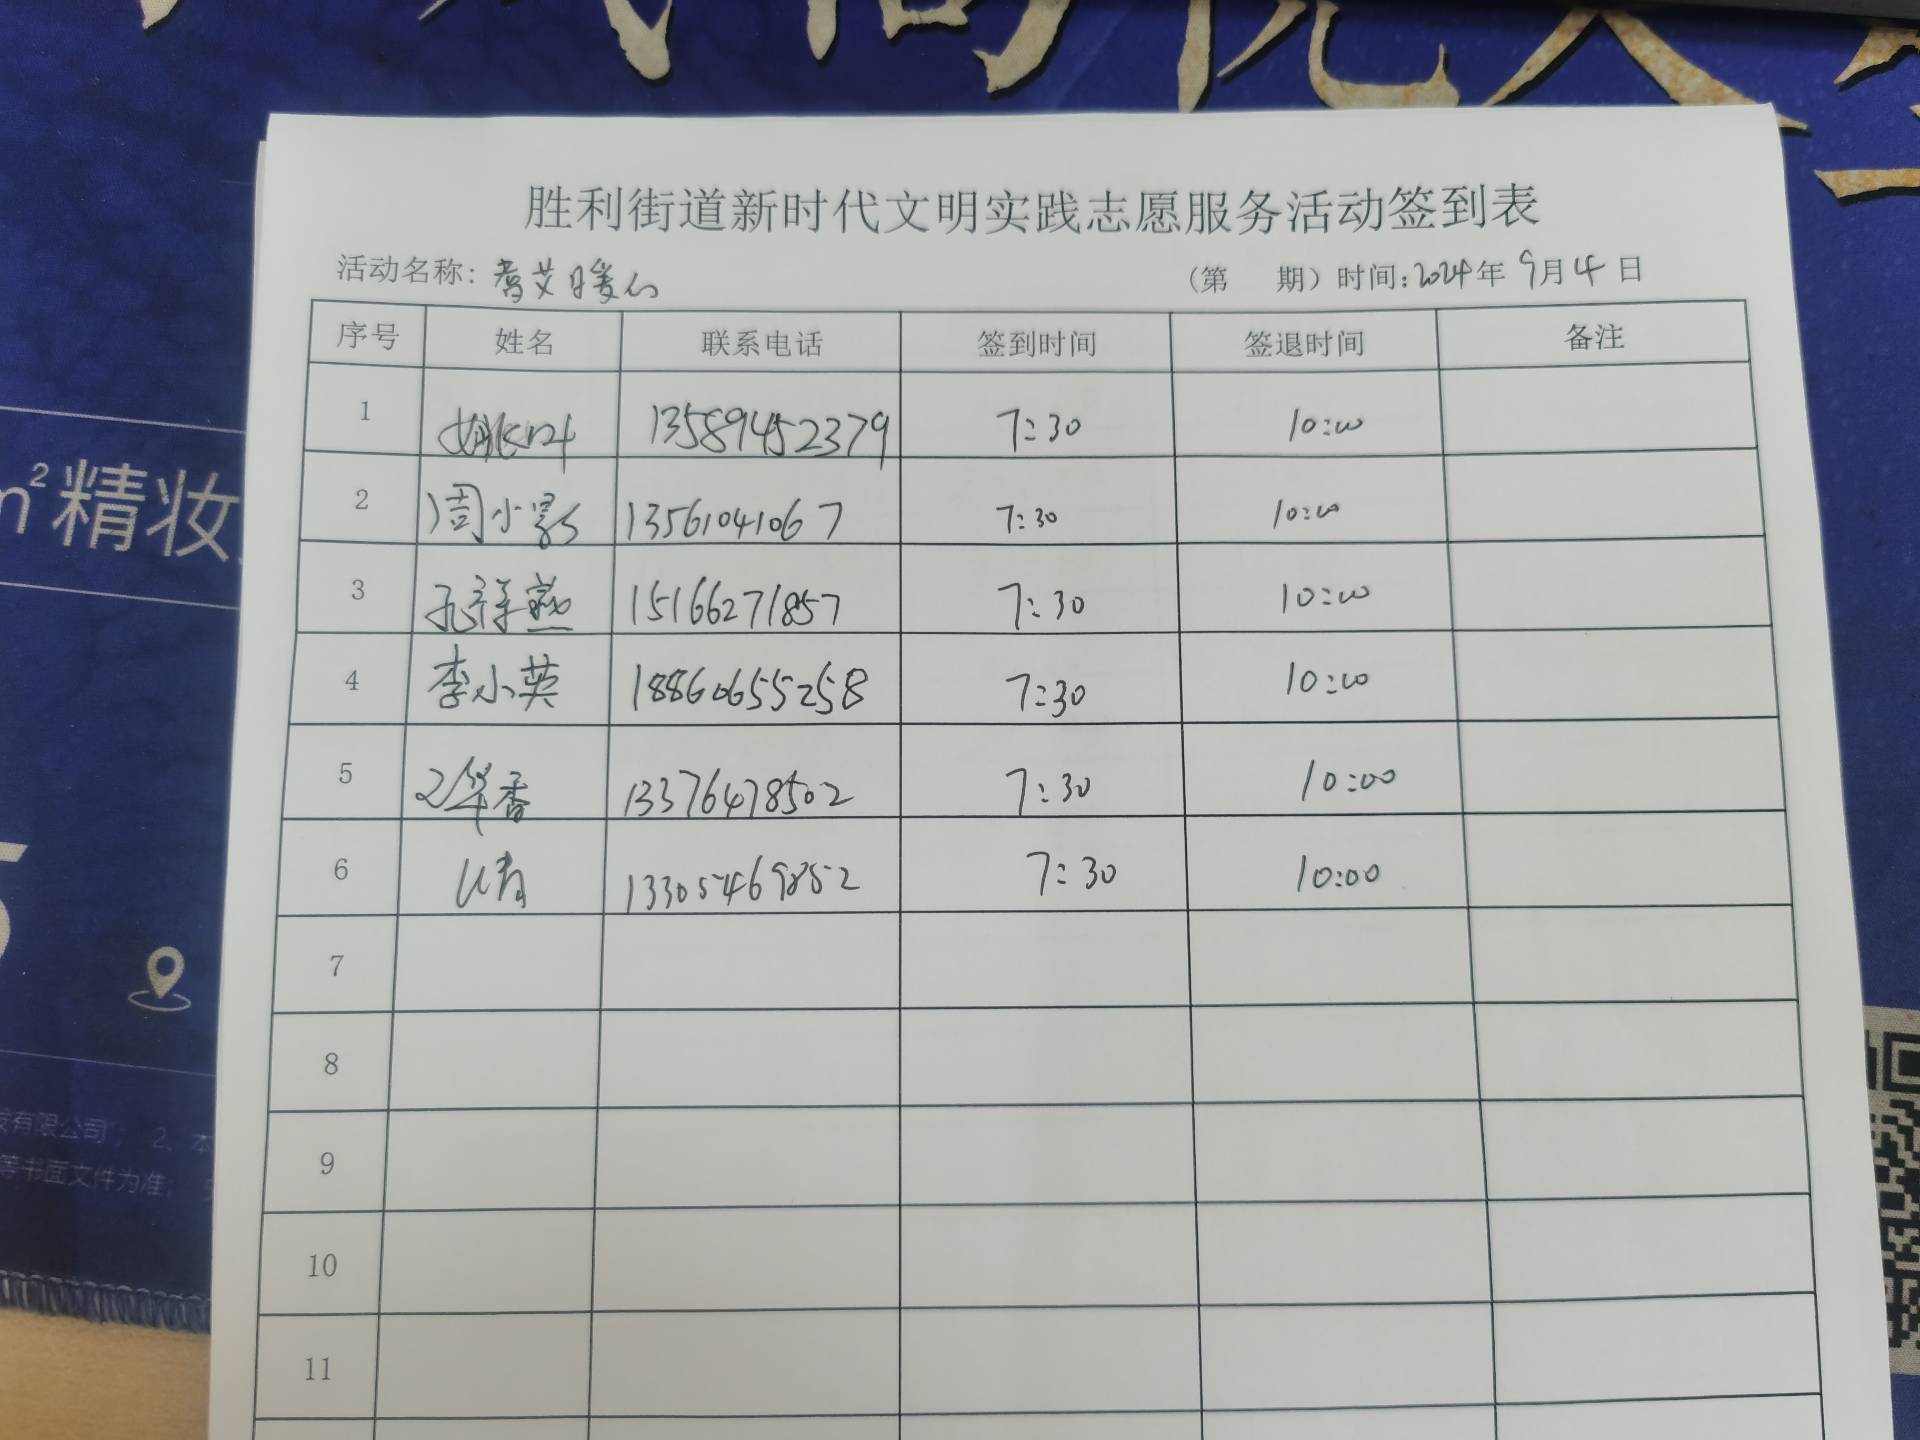 胜利街道新时代文明实践志愿服务活动签到表
活动名称: 耆艾暖心
(第 期) 时间: 2024年 9月 4 日
序号 姓名 联系电话 签到时间 签退时间 备注
1 13589452379 7:30 10:00
2 周小影 13561041067 7:30 10:00
3 孔祥燕 15166271857 7:30 10:00
4 李小英 18860655258 7:30 10:00
5 华香 13376478502 7:30 10:00
6 13305469852 7:30 10:00
7
8
9
10
11
m²精妆
发有限公司; 2、本
等书面文件为准;